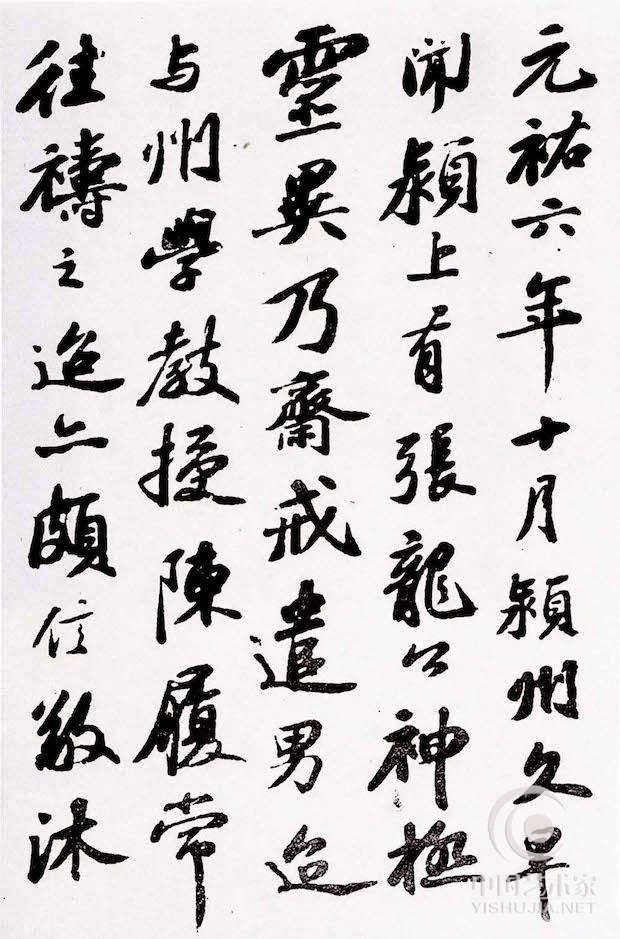 元祐六年十月潁州久旱
聞潁上有張龍公神極
靈異乃齋戒遣男迨
与州學教授陳履常
往禱之迨亦頗信敬沐
中国艺术家
YISHUJIA.NET